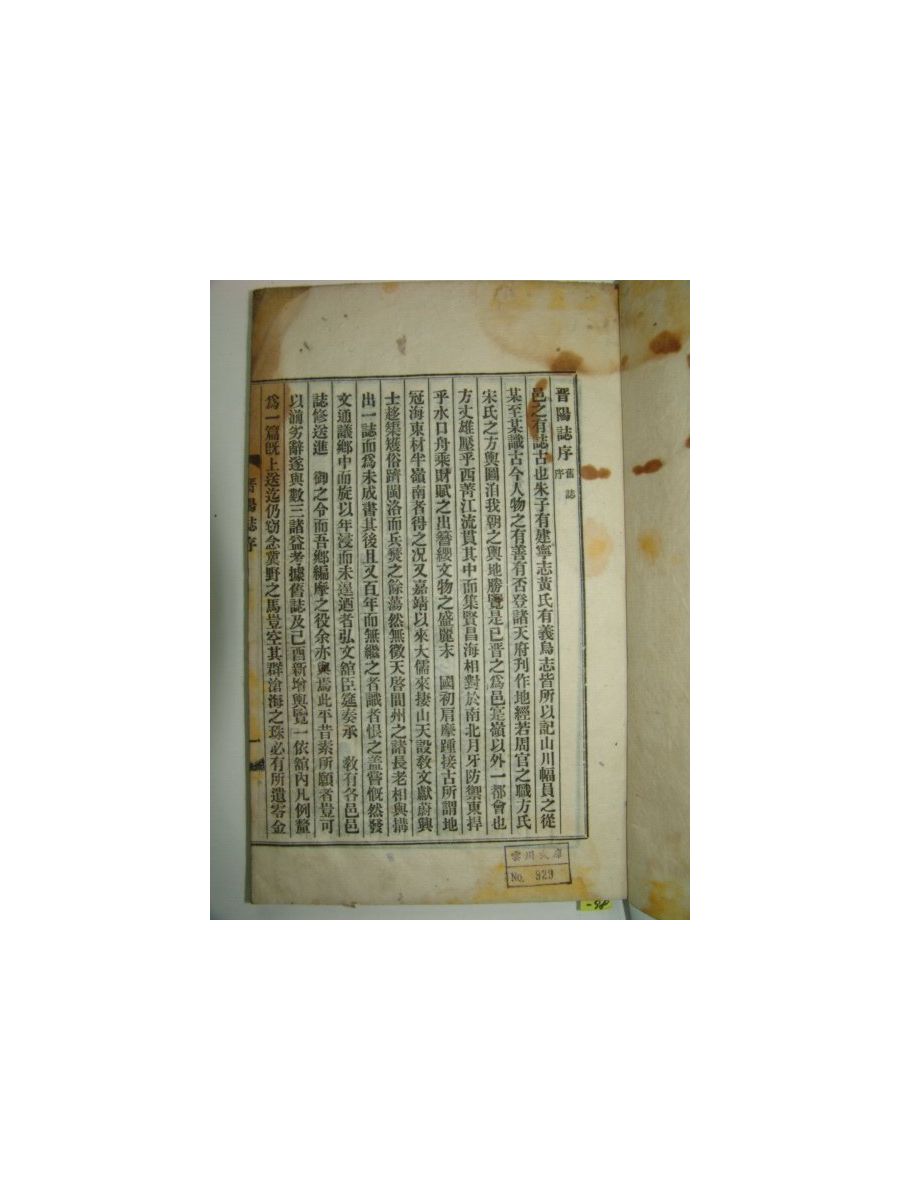 晋陽誌序 舊誌序
邑之有誌古也朱子有建寧志黃氏有義烏志皆所以記山川幅員之從
某至某識古今人物之有善有否登諸天府刊作地經若周官之職方氏
宋氏之方輿圖洎我朝之輿地勝覽是已晋之爲邑寔嶺以外一都會也
方丈雄壓乎西菁江流貫其中而集賢昌海相對於南北月牙防禦東捍
乎水口舟乘財賦之出簪纓文物之盛麗末 國初肩摩踵接古所謂地
冠海東材半嶺南者得之况又嘉靖以來大儒來捿山天設敎文獻蔚興
士趍榘矱俗躋閩洛而兵燹之餘蕩然無徵天啓間州之諸長老相與搆
出一誌而爲未成書其後且又百年而無繼之者識者恨之盖嘗慨然發
文通議鄕中而旋以年浸而未遑迺者弘文舘臣筵奏承 敎有各邑邑
誌修送進 御之令而吾鄕編摩之役余亦與焉此平昔素所願者豈可
以譾劣辭遂與數三諸益考據舊誌及己酉新增輿覽一依舘內凡例釐
爲一篇旣上送迄仍窃念冀野之馬豈空其群滄海之珠必有所遺零金
晋陽誌序
一
雲川文庫
No. 929
-98